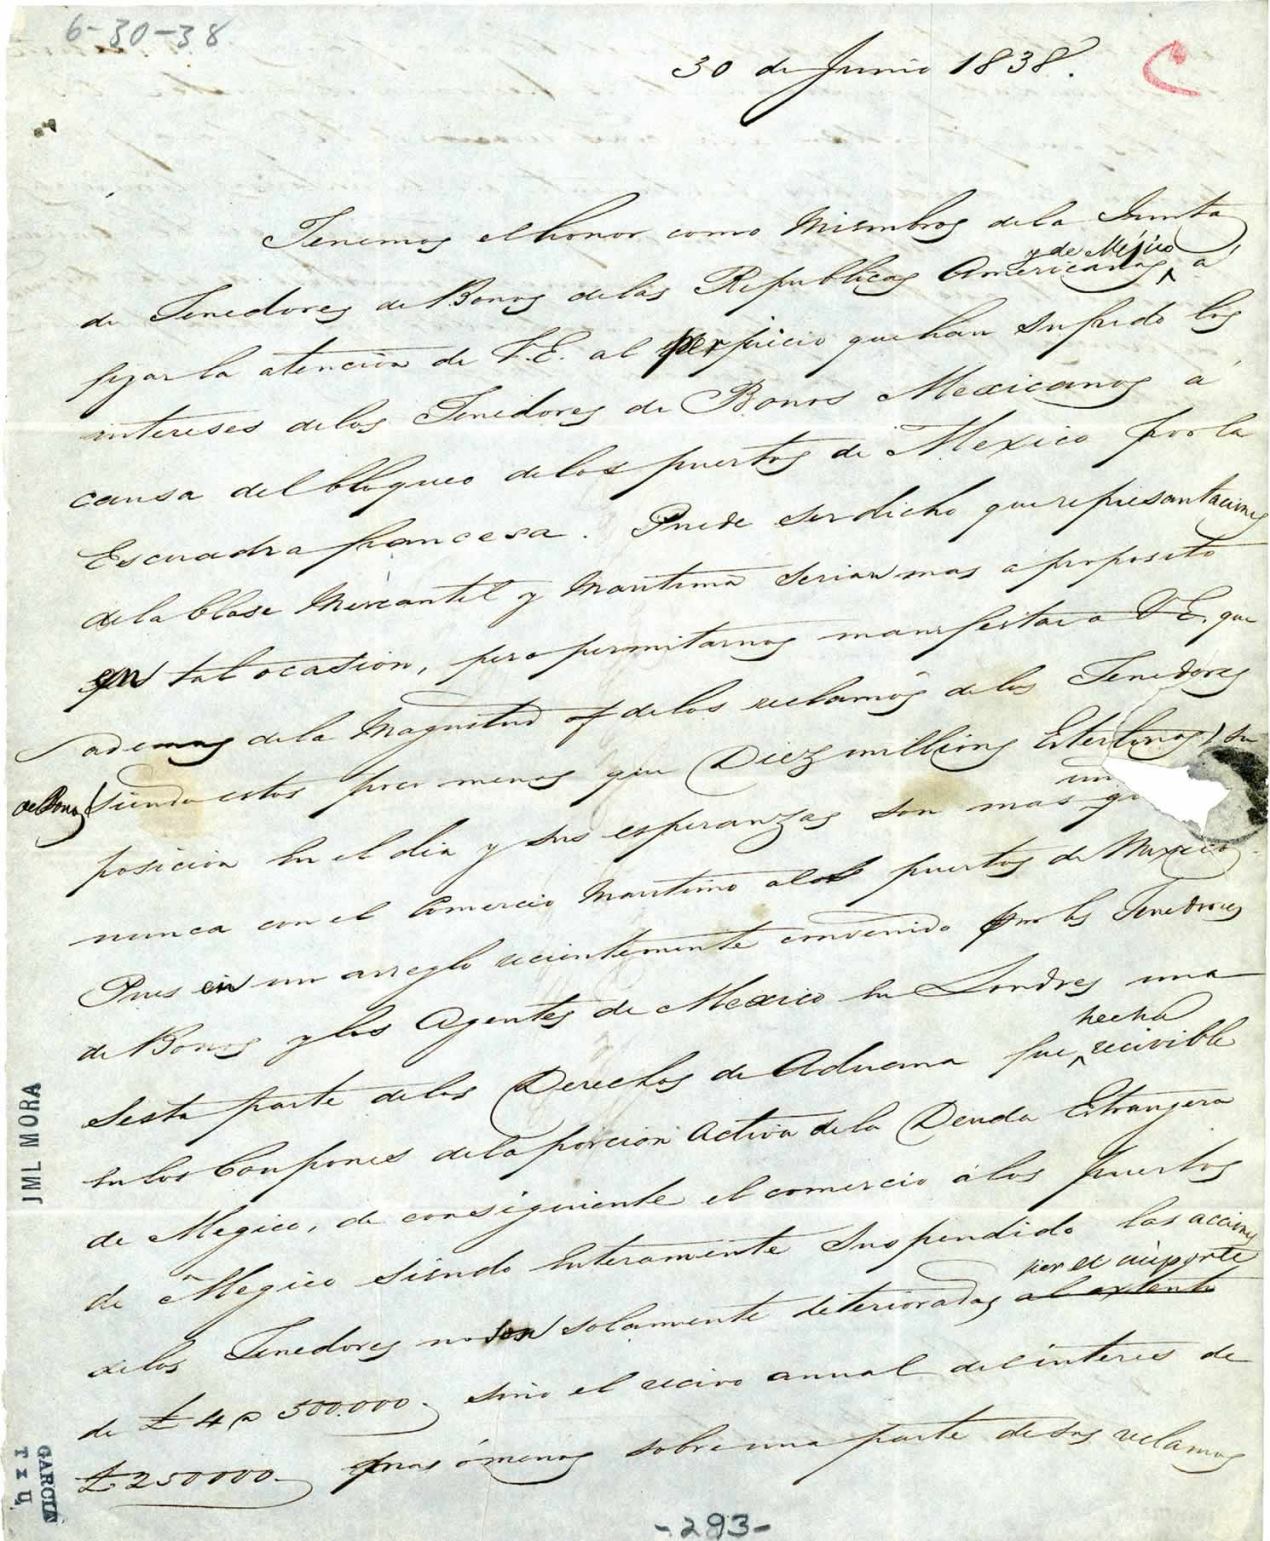 6-30-38
30 de Junio 1838.
C
Tenemos el honor como Miembros de la Junta
y de Méjico
de Tenedores de Bonos de las Republicas Americanas á
fijar la atencion de V.E. al perjuicio que han sufrido los
intereses de los Tenedores de Bonos Mexicanos á
causa del bloqueo de los puertos de Mexico por la
Escuadra francesa. Puede ser dicho que representaciones
de la Clase Mercantil y Maritima serian mas a proposito
en tal ocasion, pero permitarnos manifestar a V.E. que
ademas de la Magnitud de los reclamos de los Tenedores
de Bonos (siendo estos poco menos que Diez millions Esterlinas) su
posicion en el dia y sus esperanzas son mas
nunca con el Comercio Maritimo a los puertos de Mexico.
Pues en un arreglo recientemente convenido por los Tenedores
de Bonos y los Agentes de Mexico en Londres una
hecha
Sesta parte de los Derechos de Aduana fue recivible
en los Coupones de la porcion Activa de la Deuda Estrangera
de Megico, de consiguiente el comercio á los puertos
de Megico siendo enteramente suspendido las acciones
por el importe
de los Tenedores no son solamente deterioradas al extento
de £4 a 500.000. sino el recivo annual del interes de
£250000 mas ó menos sobre una parte de sus reclamos
-293-
JML MORA
GARCIA